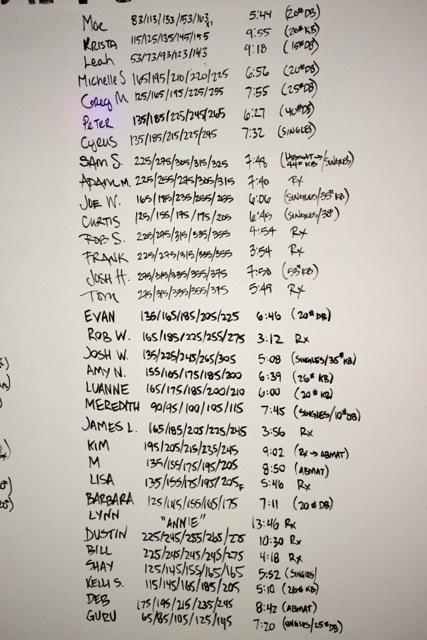 Moe 83/113/133/153/163 5:44 (20# DB)
KRISTA 115/125/135/145/155 9:55 (20# KB)
Leah 53/73/93/123/143 9:18 (15# DB)
Michelle S 165/195/210/220/225 6:56 (20# DB)
Greg M 125/165/195/225/255 7:55 (25# DB)
PETER 135/185/225/245/265 6:27 (40# DB)
Cyrus 135/185/215/225/245 7:32 (SINGLES)
SAM S. 225/275/305/315/325 7:48 (ABMAT→/SINGLES) 44# KB
ADAM M. 225/255/275/305/315 7:40 Rx
JOE W. 165/185/235/255/255 6:06 (SINGLES/35# KB)
CURTIS 125/155/175/175/205 6:45 (SINGLES/35#)
ROB S. 4:54 Rx
FRANK 3:54 Rx
JOSH H. 7:50 (53# KB)
TOM 5:49 Rx
EVAN 135/165/185/205/225 6:46 (20# DB)
ROB W. 165/185/225/255/275 3:12 Rx
JOSH W. 135/225/245/265/305 5:08 (SINGLES/35# KB)
AMY N. 155/165/175/185/200 6:39 (26# KB)
LUANNE 165/175/185/200/210 6:00 (20# KB)
MEREDITH 90/95/100/105/115 7:45 (SINGLES/10# DB)
JAMES L. 165/185/205/225/245 3:56 Rx
KIM 195/205/215/235/245 9:02 (Rx → ABMAT)
M 135/155/175/195/205 8:50 (ABMAT)
LISA 135/155/175/195/205F 5:46 Rx
BARBARA 125/145/155/165/175 7:11 (20# DB)
LYNN "ANNIE" 13:46 Rx
DUSTIN 225/245/255/265/275 10:30 Rx
BILL 225/245/245/245/275 4:18 Rx
SHAY 125/145/155/165/165 5:52 (SINGLES/
KELLI S. 115/145/165/185/205 5:10 (26# KB)
DEB 175/195/215/235/245 8:42 (ABMAT)
GURU 65/85/105/125/145 7:20 (SINGLES/25# DB)